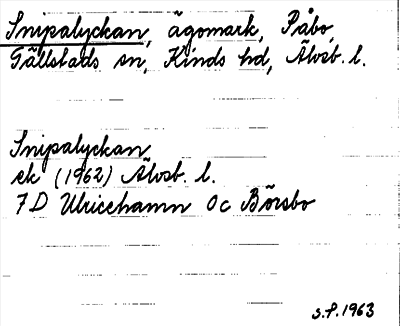 Snipalyckan, ägomark, Påbo,
Gällstads sn, Kinds hd, Älvsb. l.
Snipalyckan
ek (1962) Älvsb. l.
7D Ulricehamn 0c Börsbo
s.f. 1963